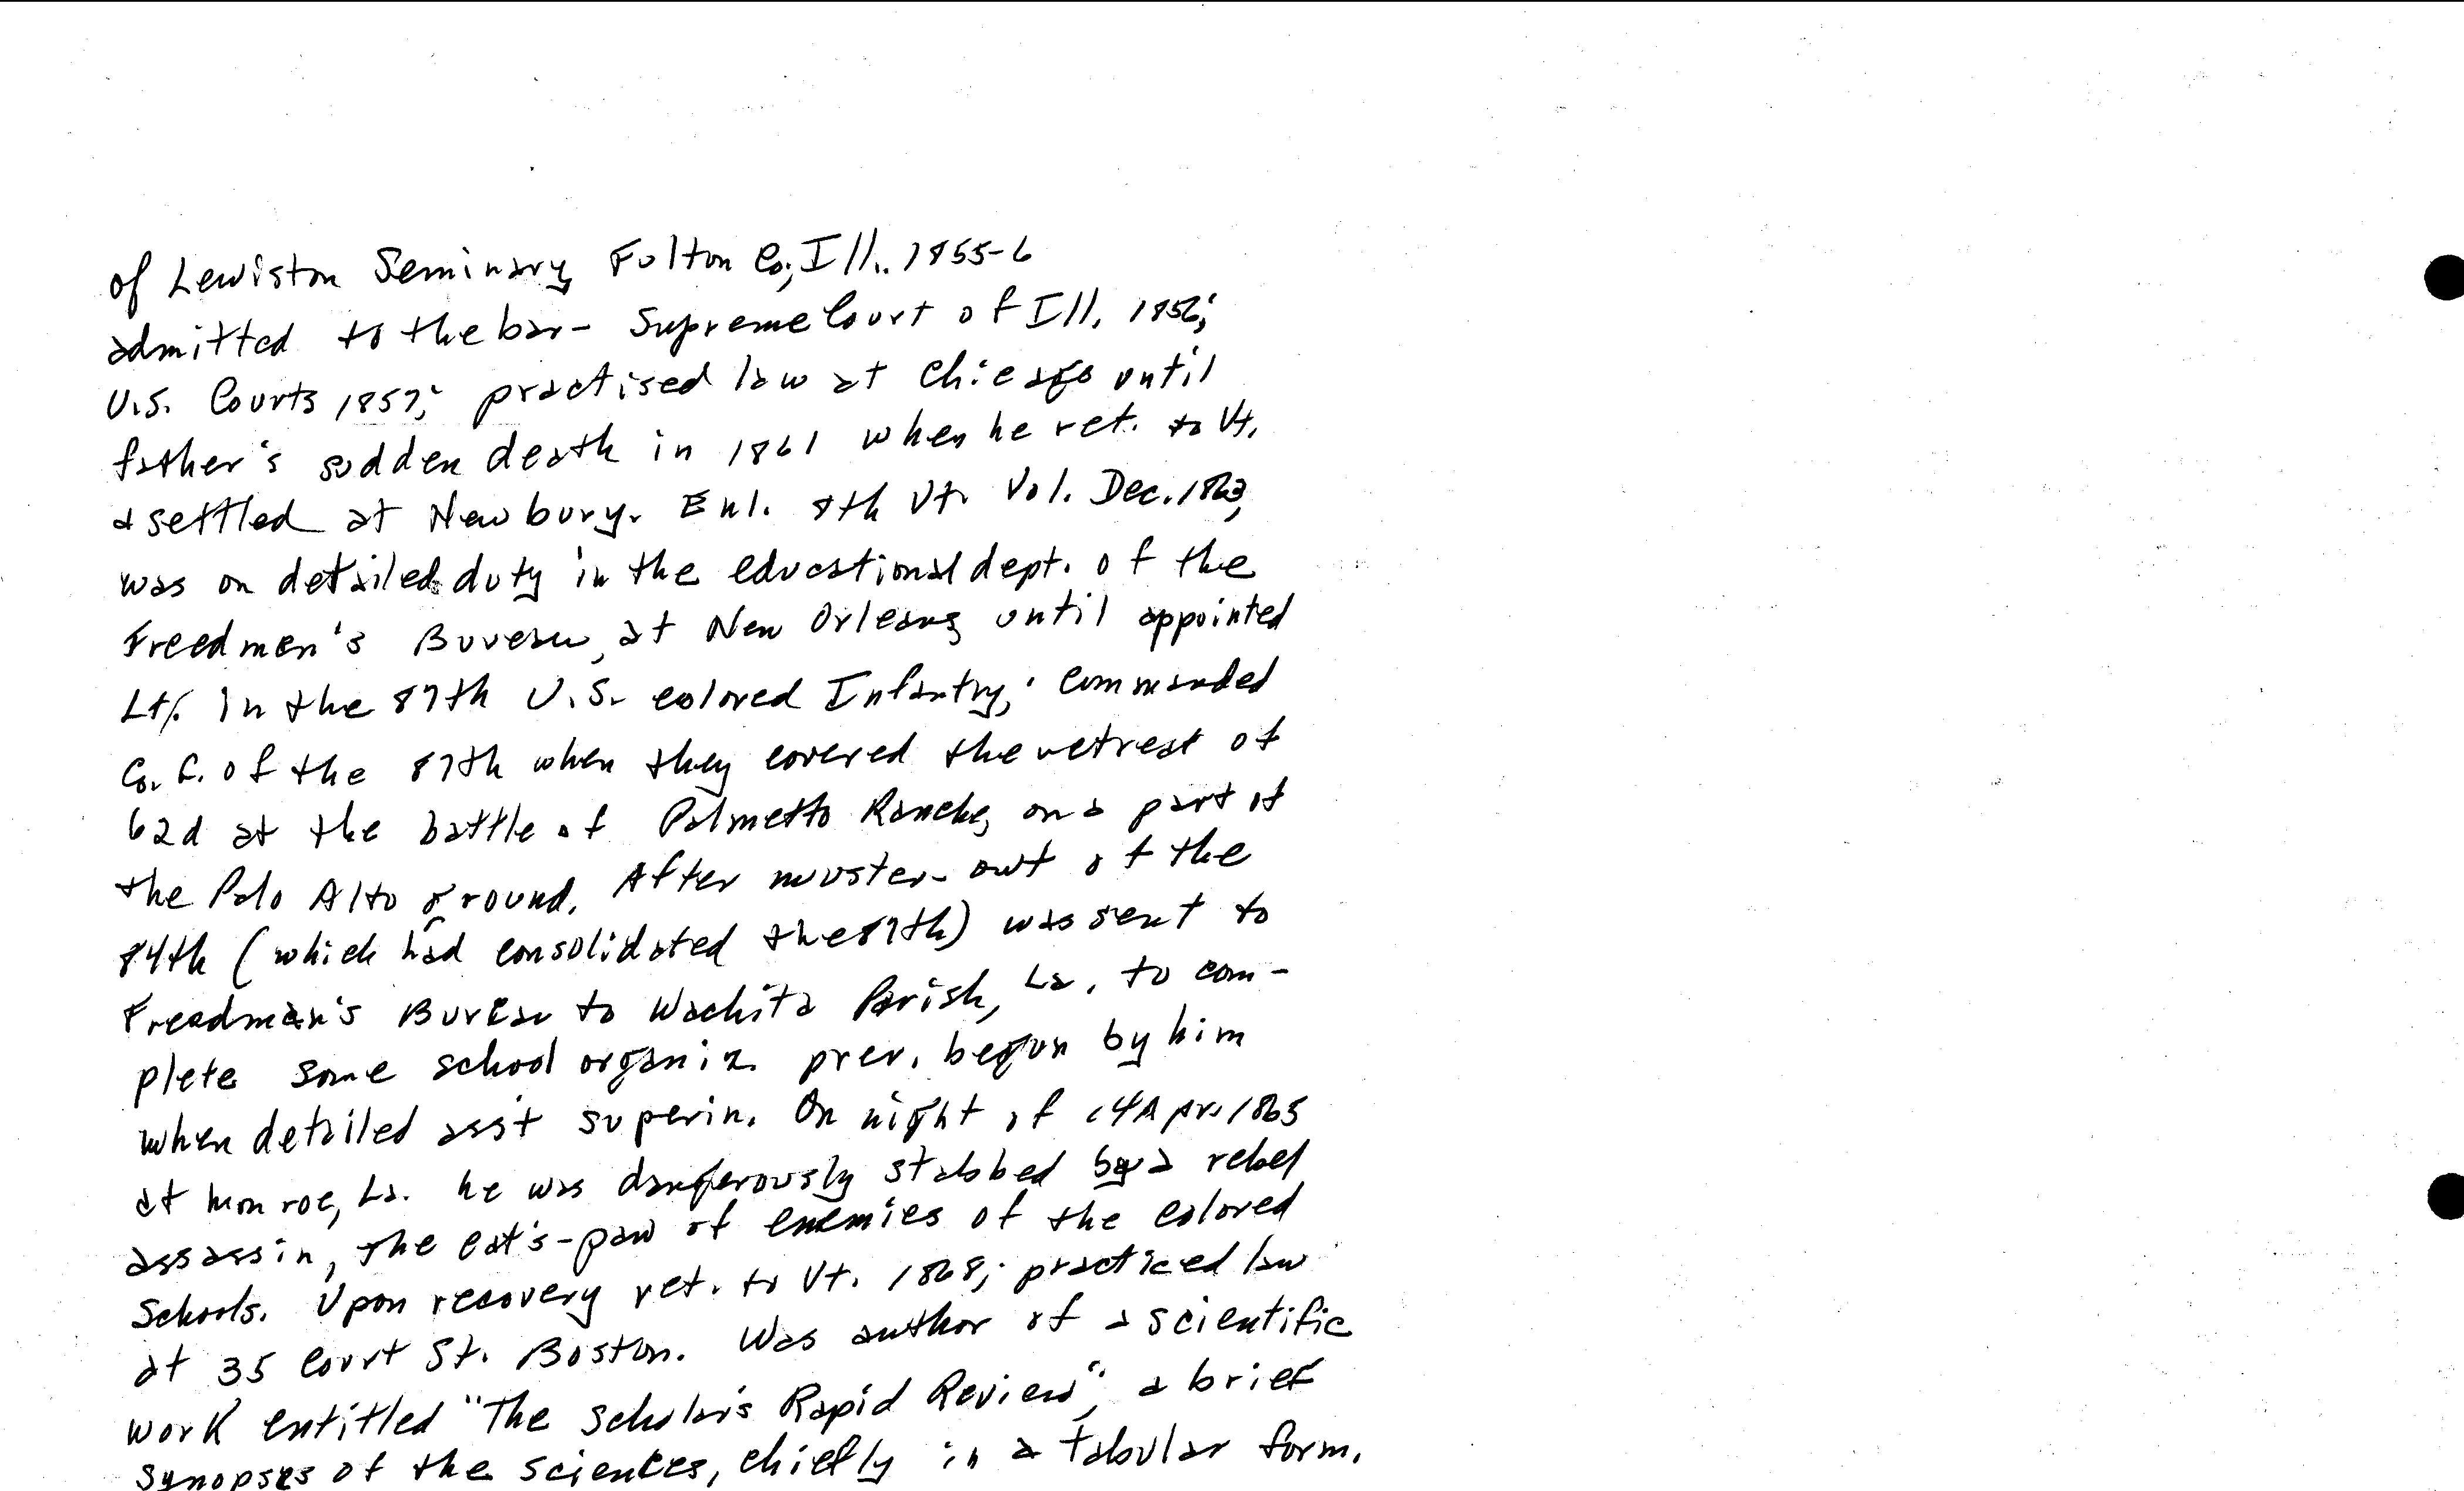 of Lewiston Seminary, Fulton Co., Ill. 1855-6
admitted to the bar- Supreme Court of Ill. 1856;
U.S. Courts 1857; practised law at Chicago until
father's sudden death in 1861 when he ret. to Vt.
& settled at Newbury. Enl. 8th Vt. Vol. Dec. 1863,
was on detailed duty in the educational dept. of the
Freedmen's Bureau, at New Orleans, until appointed
Lt. in the 87th U.S. colored Infantry; commanded
Co. C. of the 87th when they covered the retreat of
62d at the battle of Palmetto Ranche, on a part of
the Palo Alto ground. After muster-out of the
84th (which had consolidated the 87th) was sent to
Freedman's Bureau to Wachita Parish, La. to com-
plete some school organiz. prev. begun by him
when detailed ass't superin. On night of 14 Apr. 1865
at Monroe, La. he was dangerously stabbed by a rebel
assassin, the cat's-paw of enemies of the colored
schools. Upon recovery ret. to Vt. 1868; practiced law
at 35 Court St. Boston. Was author of a scientific
work entitled "The Scholar's Rapid Review", a brief
synopses of the sciences, chiefly in a tabular form.